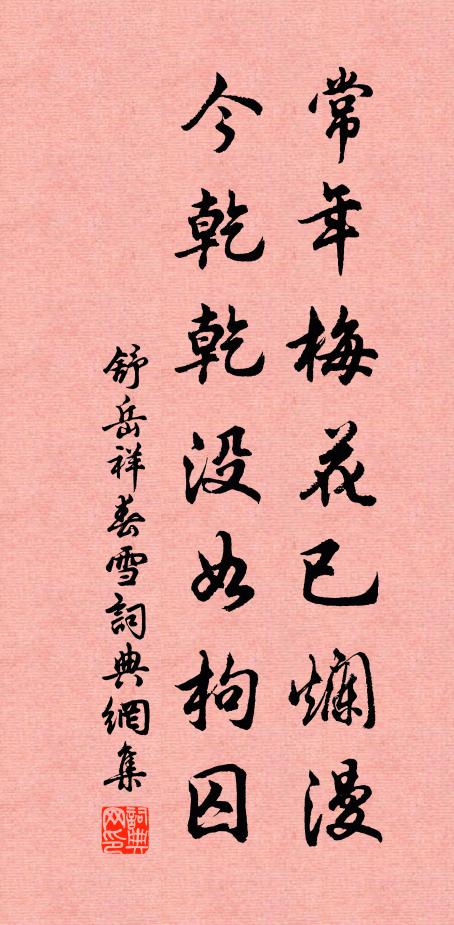 常年梅花已爛漫
今乾乾没如枸囚
舒岳祥春雪詞典網集
詞典网印